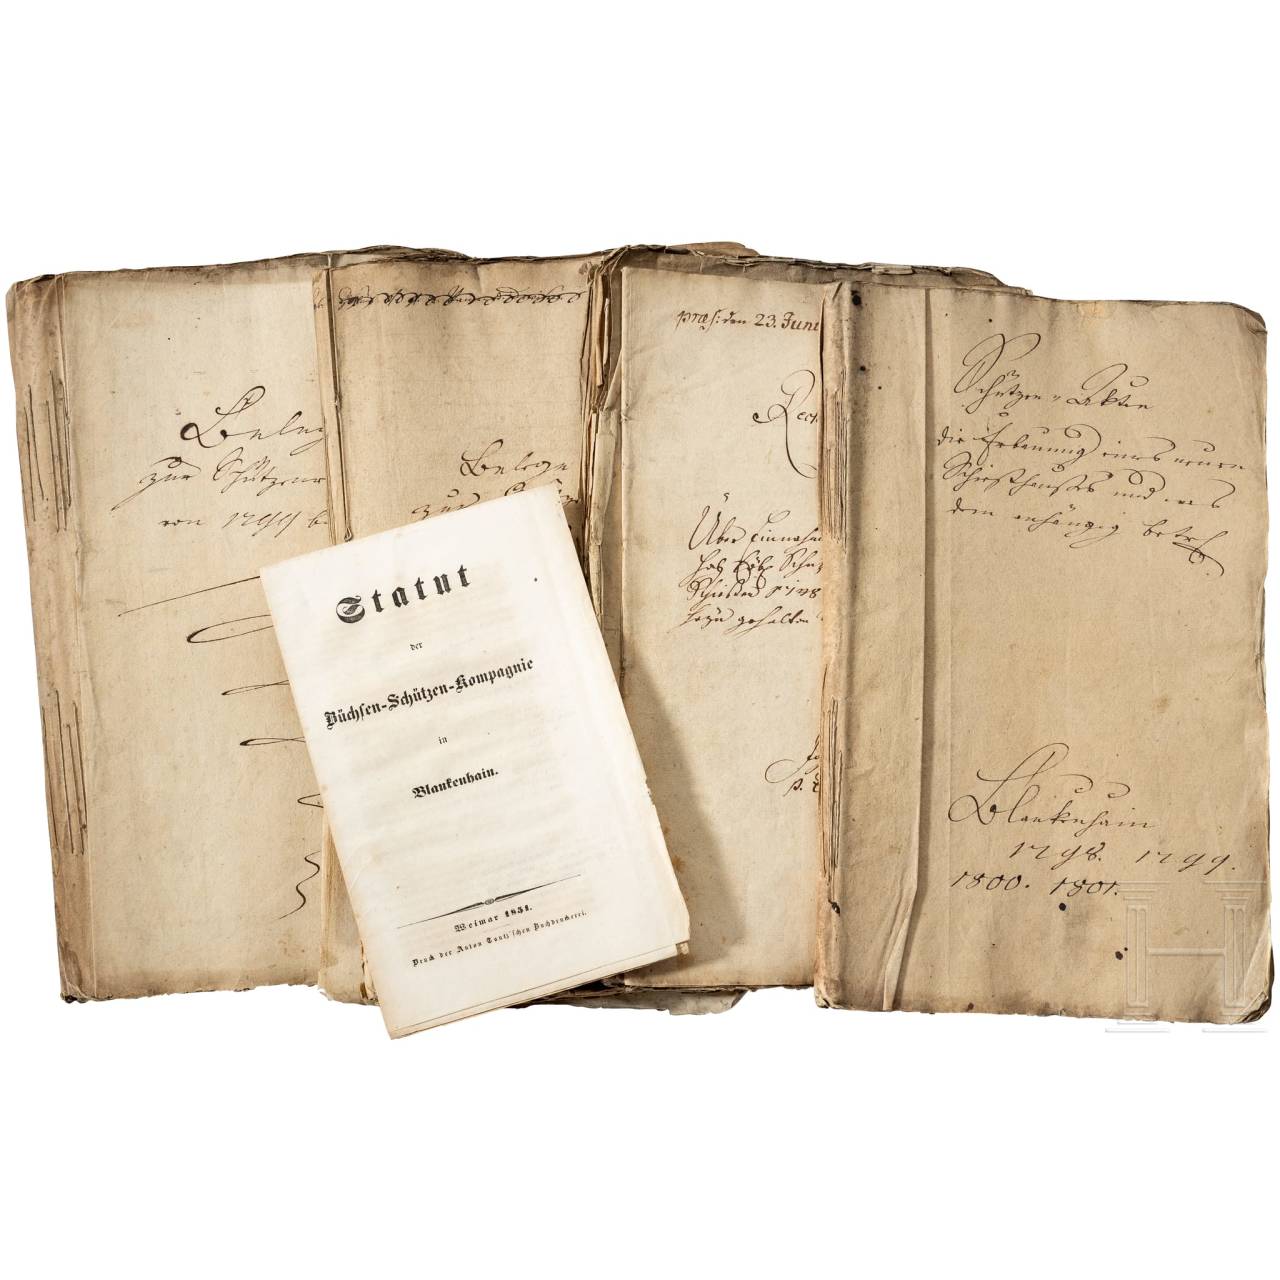 Beleg
zur Schützen
von 1799 b
Belege
zur
præs: den 23. Juni
Rech
Über Einnahm
Schü
Schießen
gehalten
Schützen-Akten
die Erbauung eines neuen
Schießhauses und was
dem anhängig betrf.
Blankenhain
1798. 1799.
1800. 1801.
Statut
der
Büchsen-Schützen-Kompagnie
in
Blankenhain.
Weimar 1851.
Druck der Anton Tantz'schen Buchdruckerei.
H